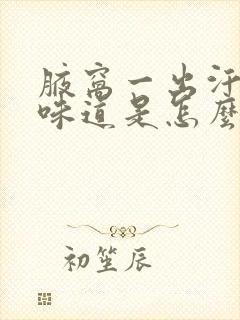 腋窝一出汗
味道是怎麼
初笙辰